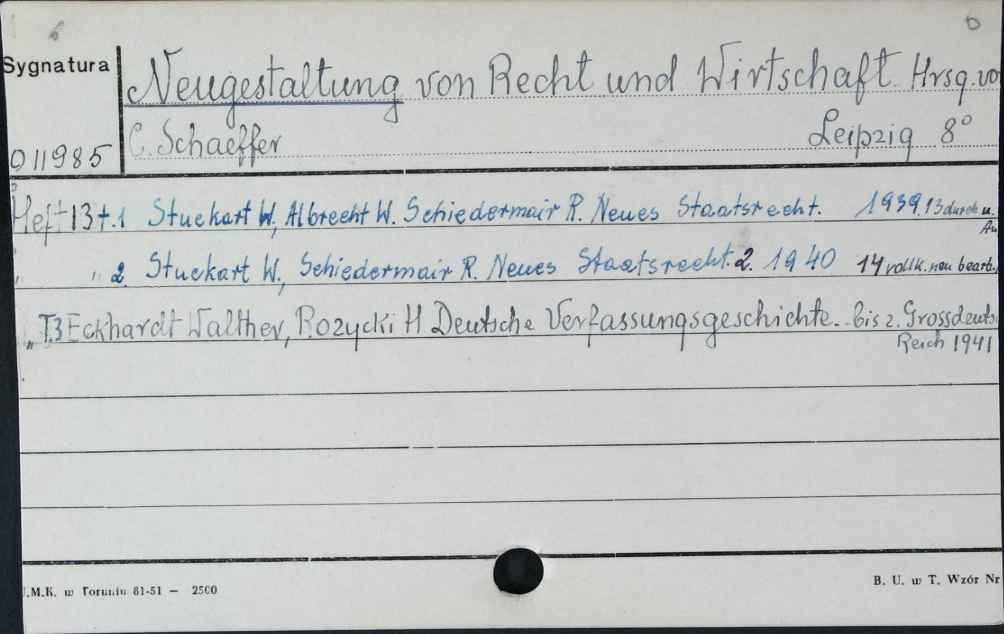 6
Sygnatura
Neugestaltung von Recht und Wirtschaft. Hrsg. vo
C. Schaeffer Leipzig 8°
011985
Heft 13 t.1 Stuckart W., Albrecht W. Schiedermair R. Neues Staatsrecht. 1939. 13 durch u.
" 2 Stuckart W., Schiedermair R. Neues Staatsrecht. 2. 1940 14 vollk. neu bearb.
" T.3 Eckhardt Walther, Rozycki H Deutsche Verfassungsgeschichte. Bis z. Grossdeuts
Reich 1941
.M.K. w Toruniu 81-51 — 2500
B. U. w T. Wzór Nr